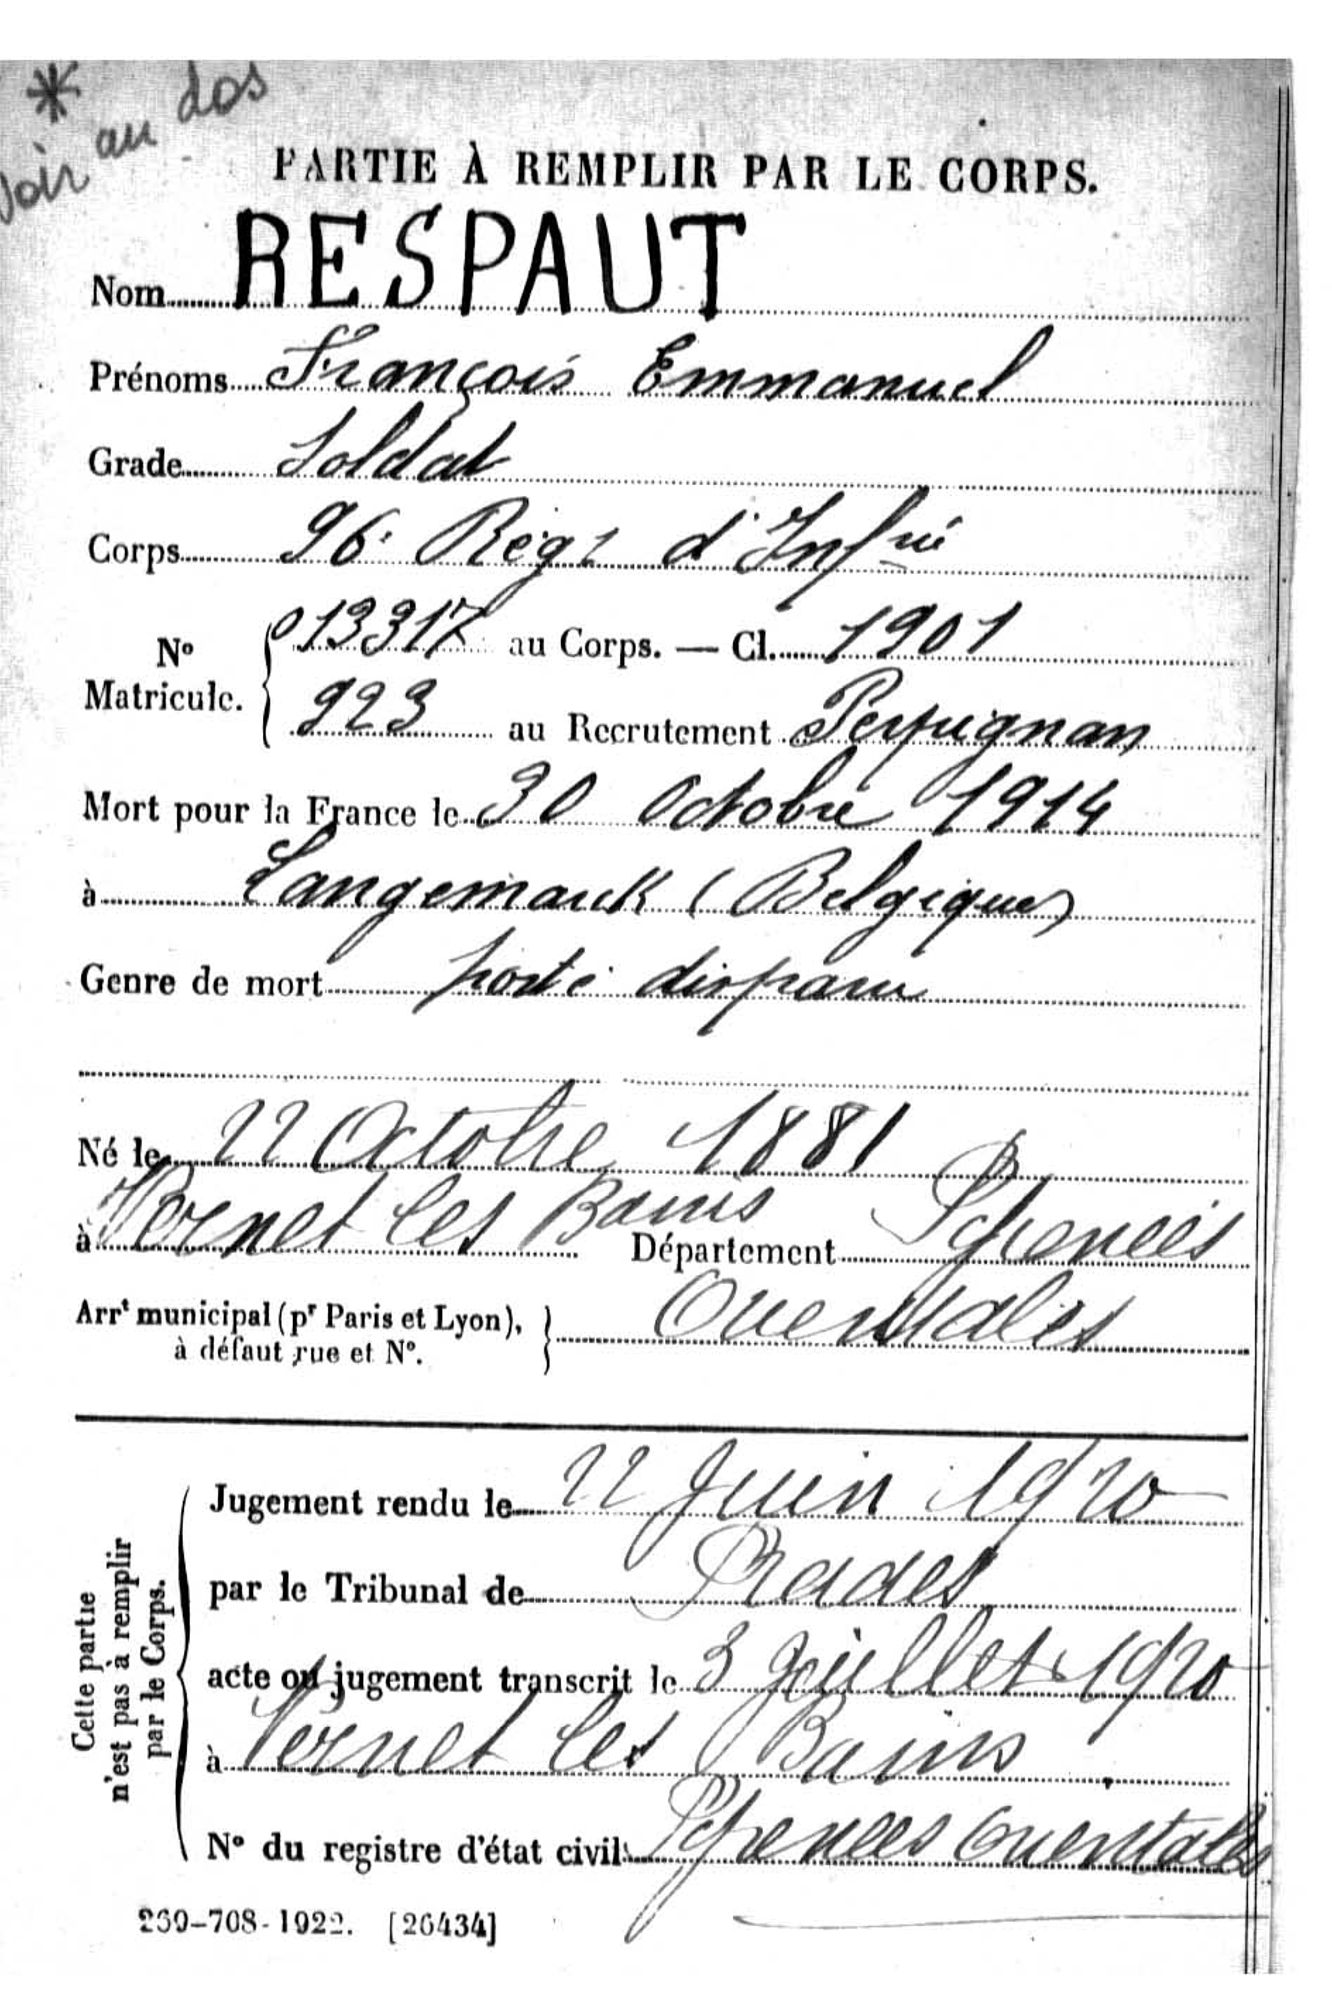 * Voir au dos
PARTIE À REMPLIR PAR LE CORPS.
Nom RESPAUT
Prénoms François Emmanuel
Grade Soldat
Corps 96e Régt d'Infrie
No Matricule. { 013317 au Corps. — Cl. 1901
923 au Recrutement Perpignan
Mort pour la France le 30 Octobre 1914
à Langemarck (Belgique)
Genre de mort porté disparu
Né le 22 Octobre 1881
à Vernet les Bains Département Pyrenées
Arrt municipal (pr Paris et Lyon), à défaut rue et No. } Orientales
Cette partie n'est pas à remplir par le Corps.
Jugement rendu le 22 Juin 1920
par le Tribunal de Prades
acte ou jugement transcrit le 3 Juillet 1920
à Vernet les Bains
No du registre d'état civil Pyrenées Orientales
269-708-1922. [26434]